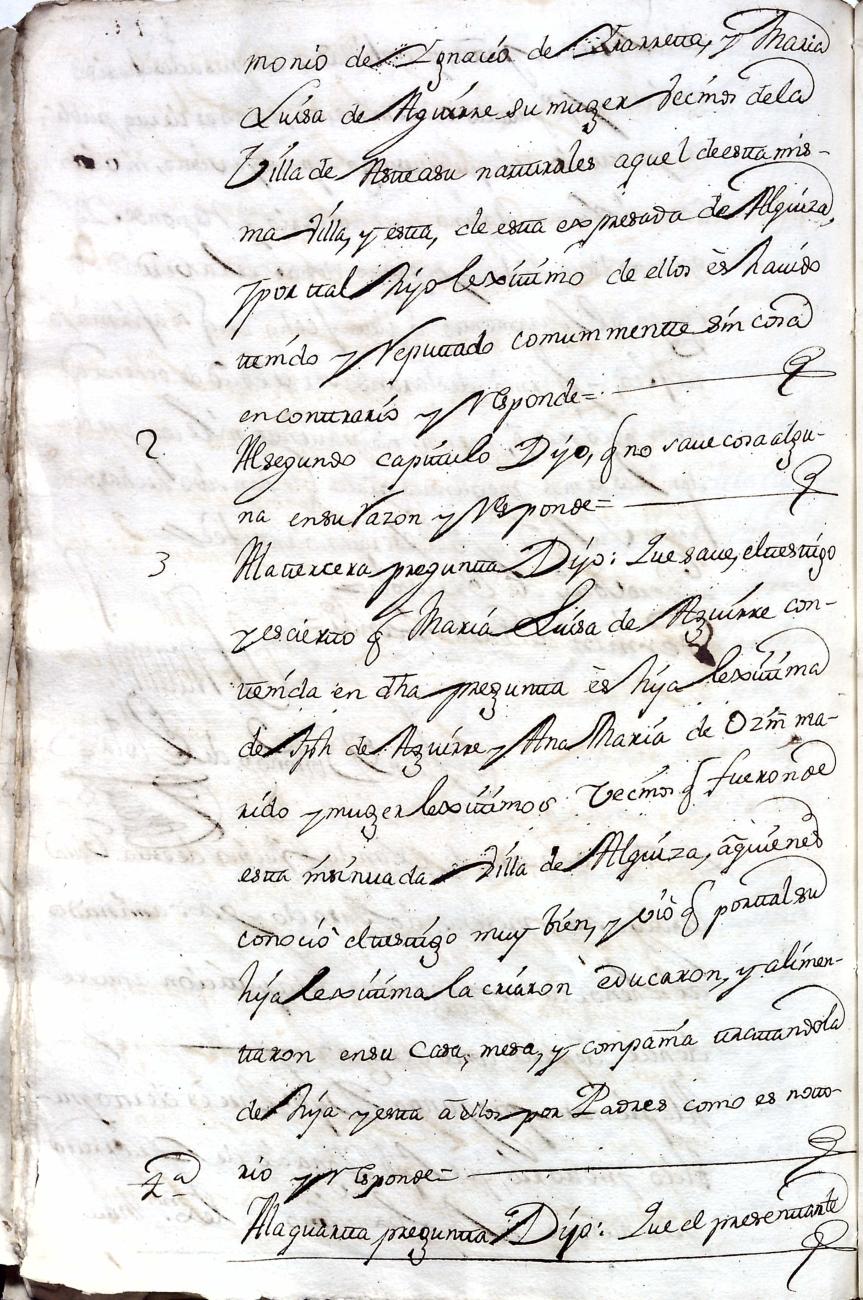 monio de Ygnacio de Yrarreta, y Maria
Luisa de Aguirre su muger Vecinos dela
Villa de Asteasu naturales aquel deesta mis-
ma Villa, y esta, de esta expresada de Alquiza,
y por tal hijo lexitimo de ellos ès havido
tenido y Reputado comunmente sin cosa
en contrario y Responde=
2. Alsegundo capitulo Dijo, q no save cosa algu-
na ensu razon y Responde=
3 Ala tercera pregunta Dijo: Que save, el testigo
y es cierto q Maria Luisa de Aguirre con-
tenida en dha pregunta ès hija lexitima
de Jph de Aguirre y Ana Maria de Ozin ma-
rido y muger lexitimos Vecinos q fueron de
esta insinuada Villa de Alquiza, à quienes
conociò el testigo muy bien, y viò q por tal su
hija lexitima la criaron educaron, y alimen-
taron ensu casa, mesa, y compañia tratandola
de hija y esta à ellos por Padres como es noto-
rio y Responde=
4a Ala quarta pregunta Dijo: Que el presentante